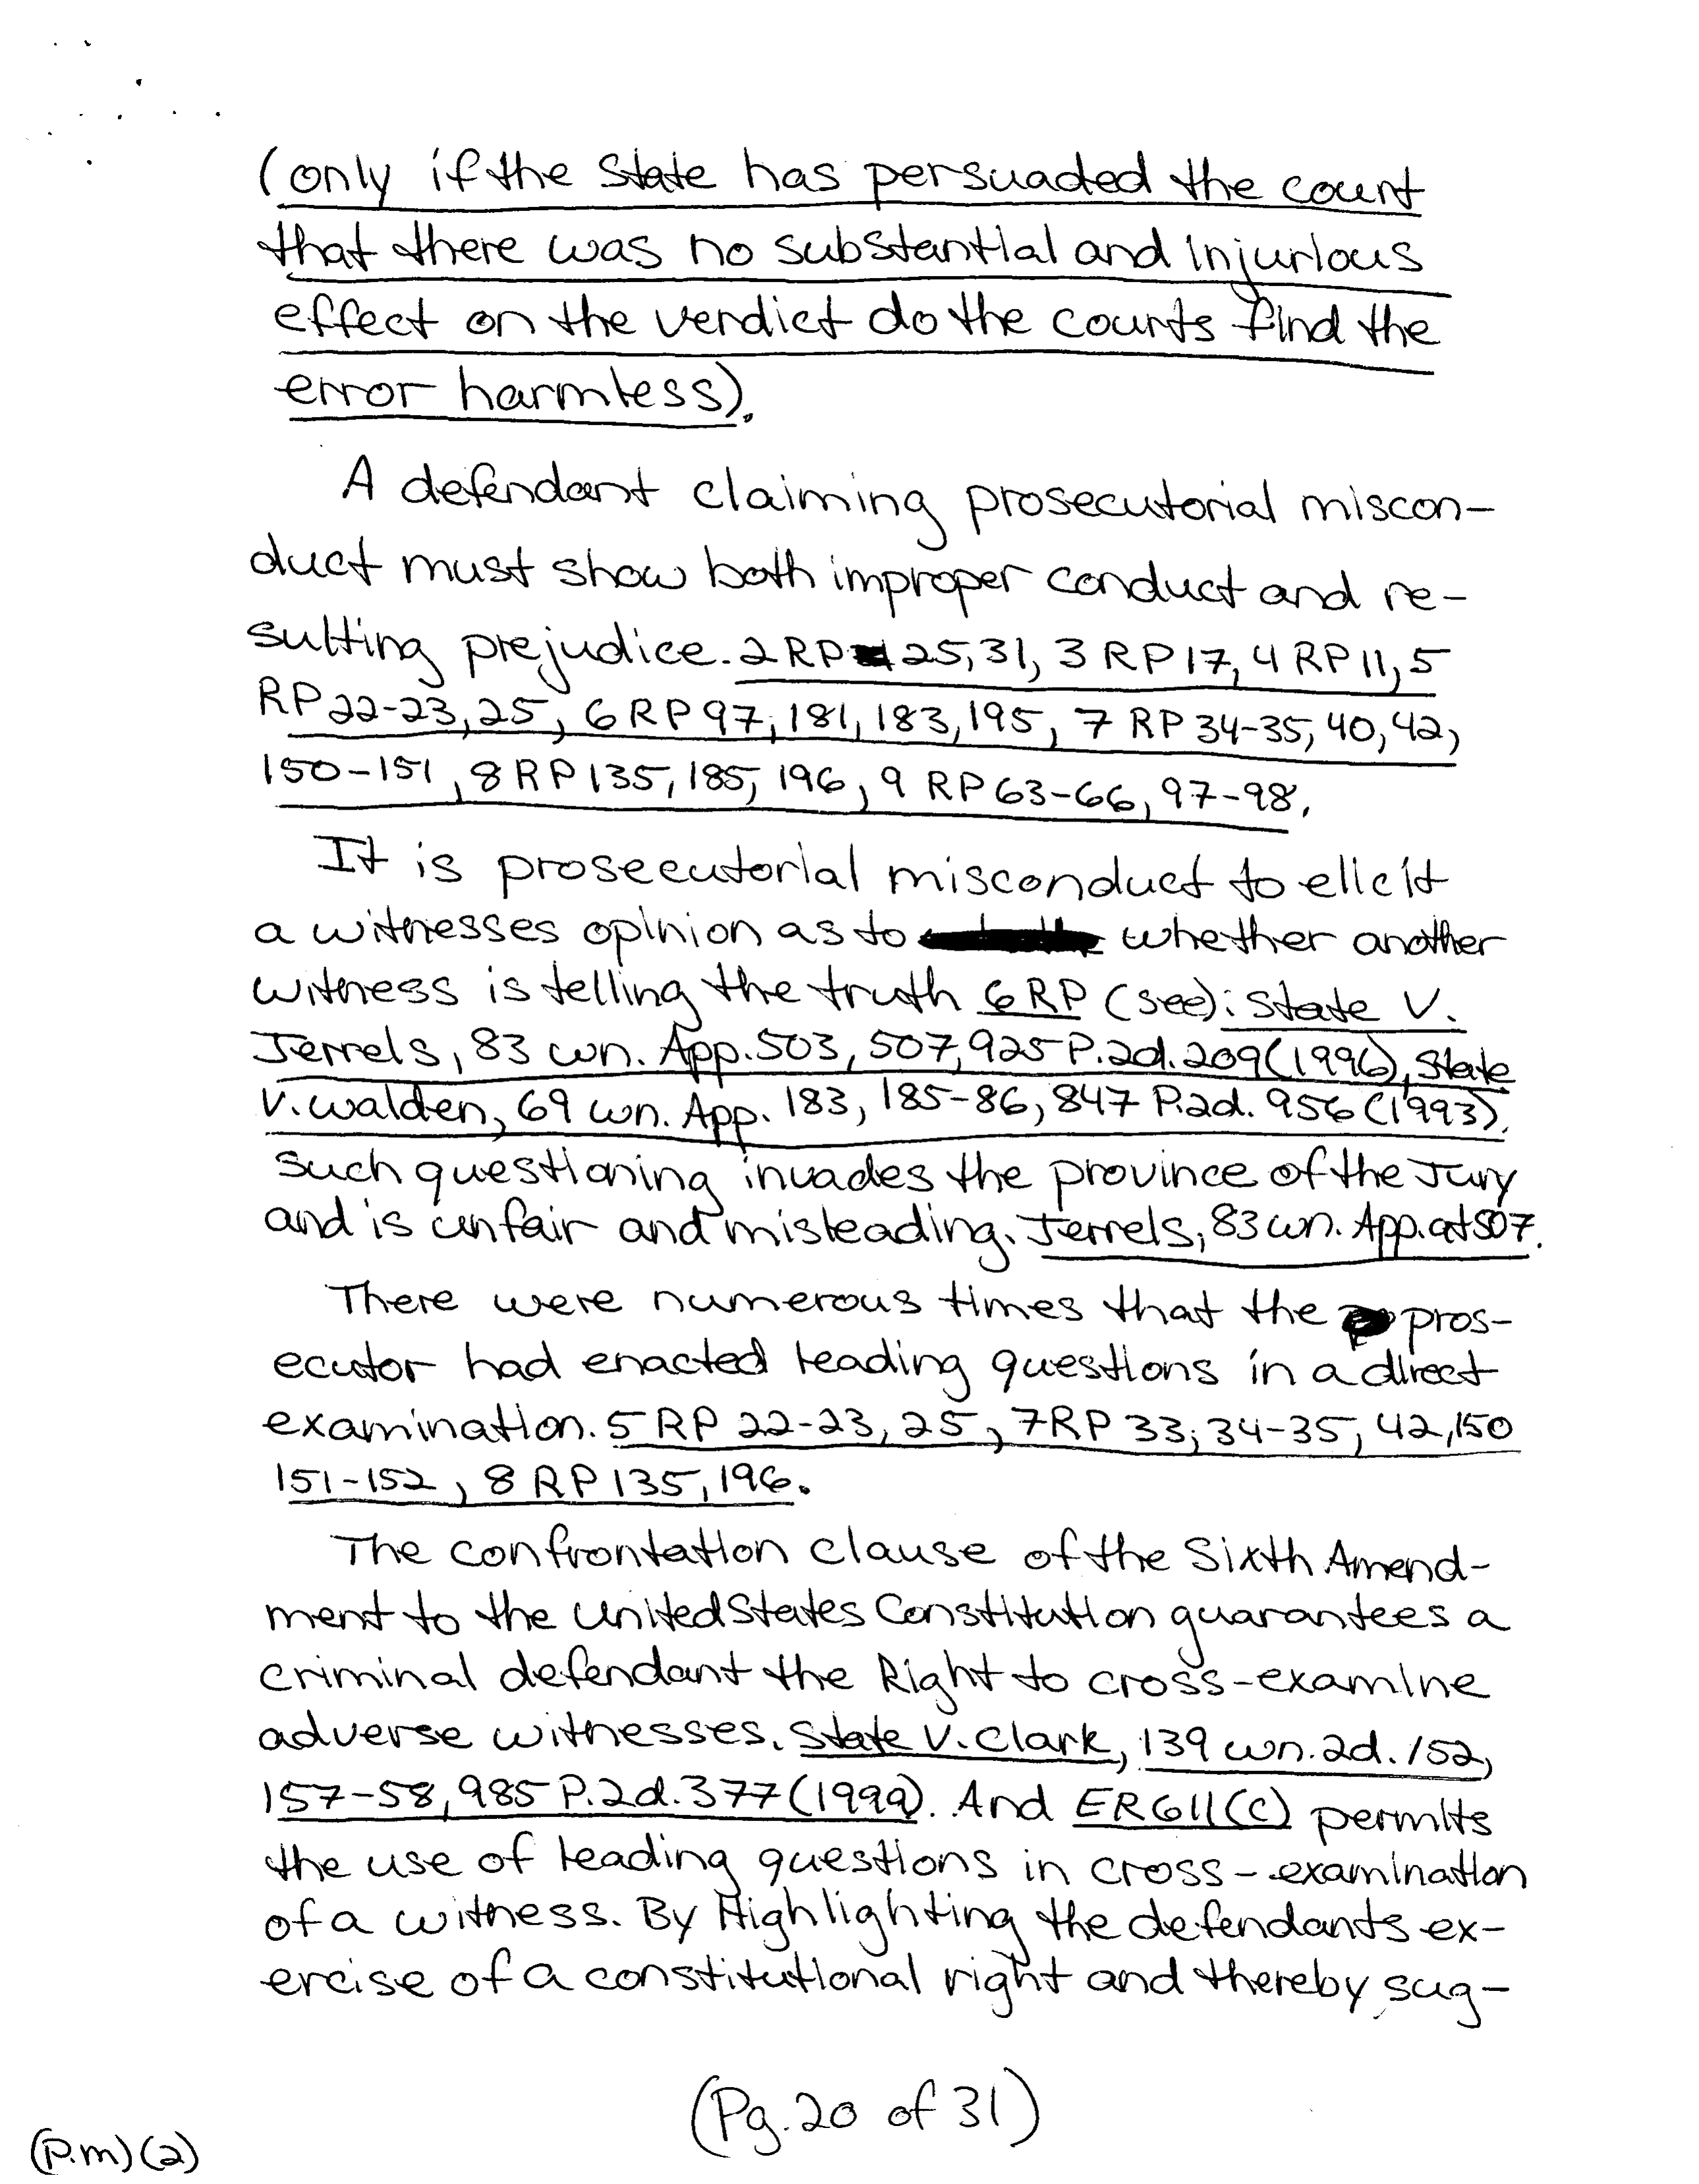 (only if the State has persuaded the court
that there was no substantial and injurious
effect on the verdict do the courts find the
error harmless).
A defendant claiming prosecutorial miscon-
duct must show both improper conduct and re-
sulting prejudice. 2 RP 25, 31, 3 RP 17, 4 RP 11, 5
RP 22-23, 25, 6 RP 97, 181, 183, 195, 7 RP 34-35, 40, 42,
150-151, 8 RP 135, 185, 196, 9 RP 63-66, 97-98.
It is prosecutorial misconduct to elicit
a witnesses opinion as to whether another
witness is telling the truth 6 RP (see): State V.
Jerrels, 83 wn. App. 503, 507, 925 P.2d. 209 (1996), State
V. walden, 69 wn. App. 183, 185-86, 847 P.2d. 956 (1993).
such questioning invades the province of the Jury
and is unfair and misleading. Jerrels, 83 wn. App. at 507.
There were numerous times that the pros-
ecutor had enacted leading questions in a direct
examination. 5 RP 22-23, 25, 7RP 33, 34-35, 42, 150
151-152, 8 RP 135, 196.
The confrontation clause of the Sixth Amend-
ment to the United States Constitution guarantees a
criminal defendant the Right to cross-examine
adverse witnesses. State V. Clark, 139 wn. 2d. 152,
157-58, 985 P.2d. 377 (1999). And ER611(c) permits
the use of leading questions in cross-examination
of a witness. By Highlighting the defendants ex-
ercise of a constitutional right and thereby sug-
(Pg. 20 of 31)
(P.m) (2)